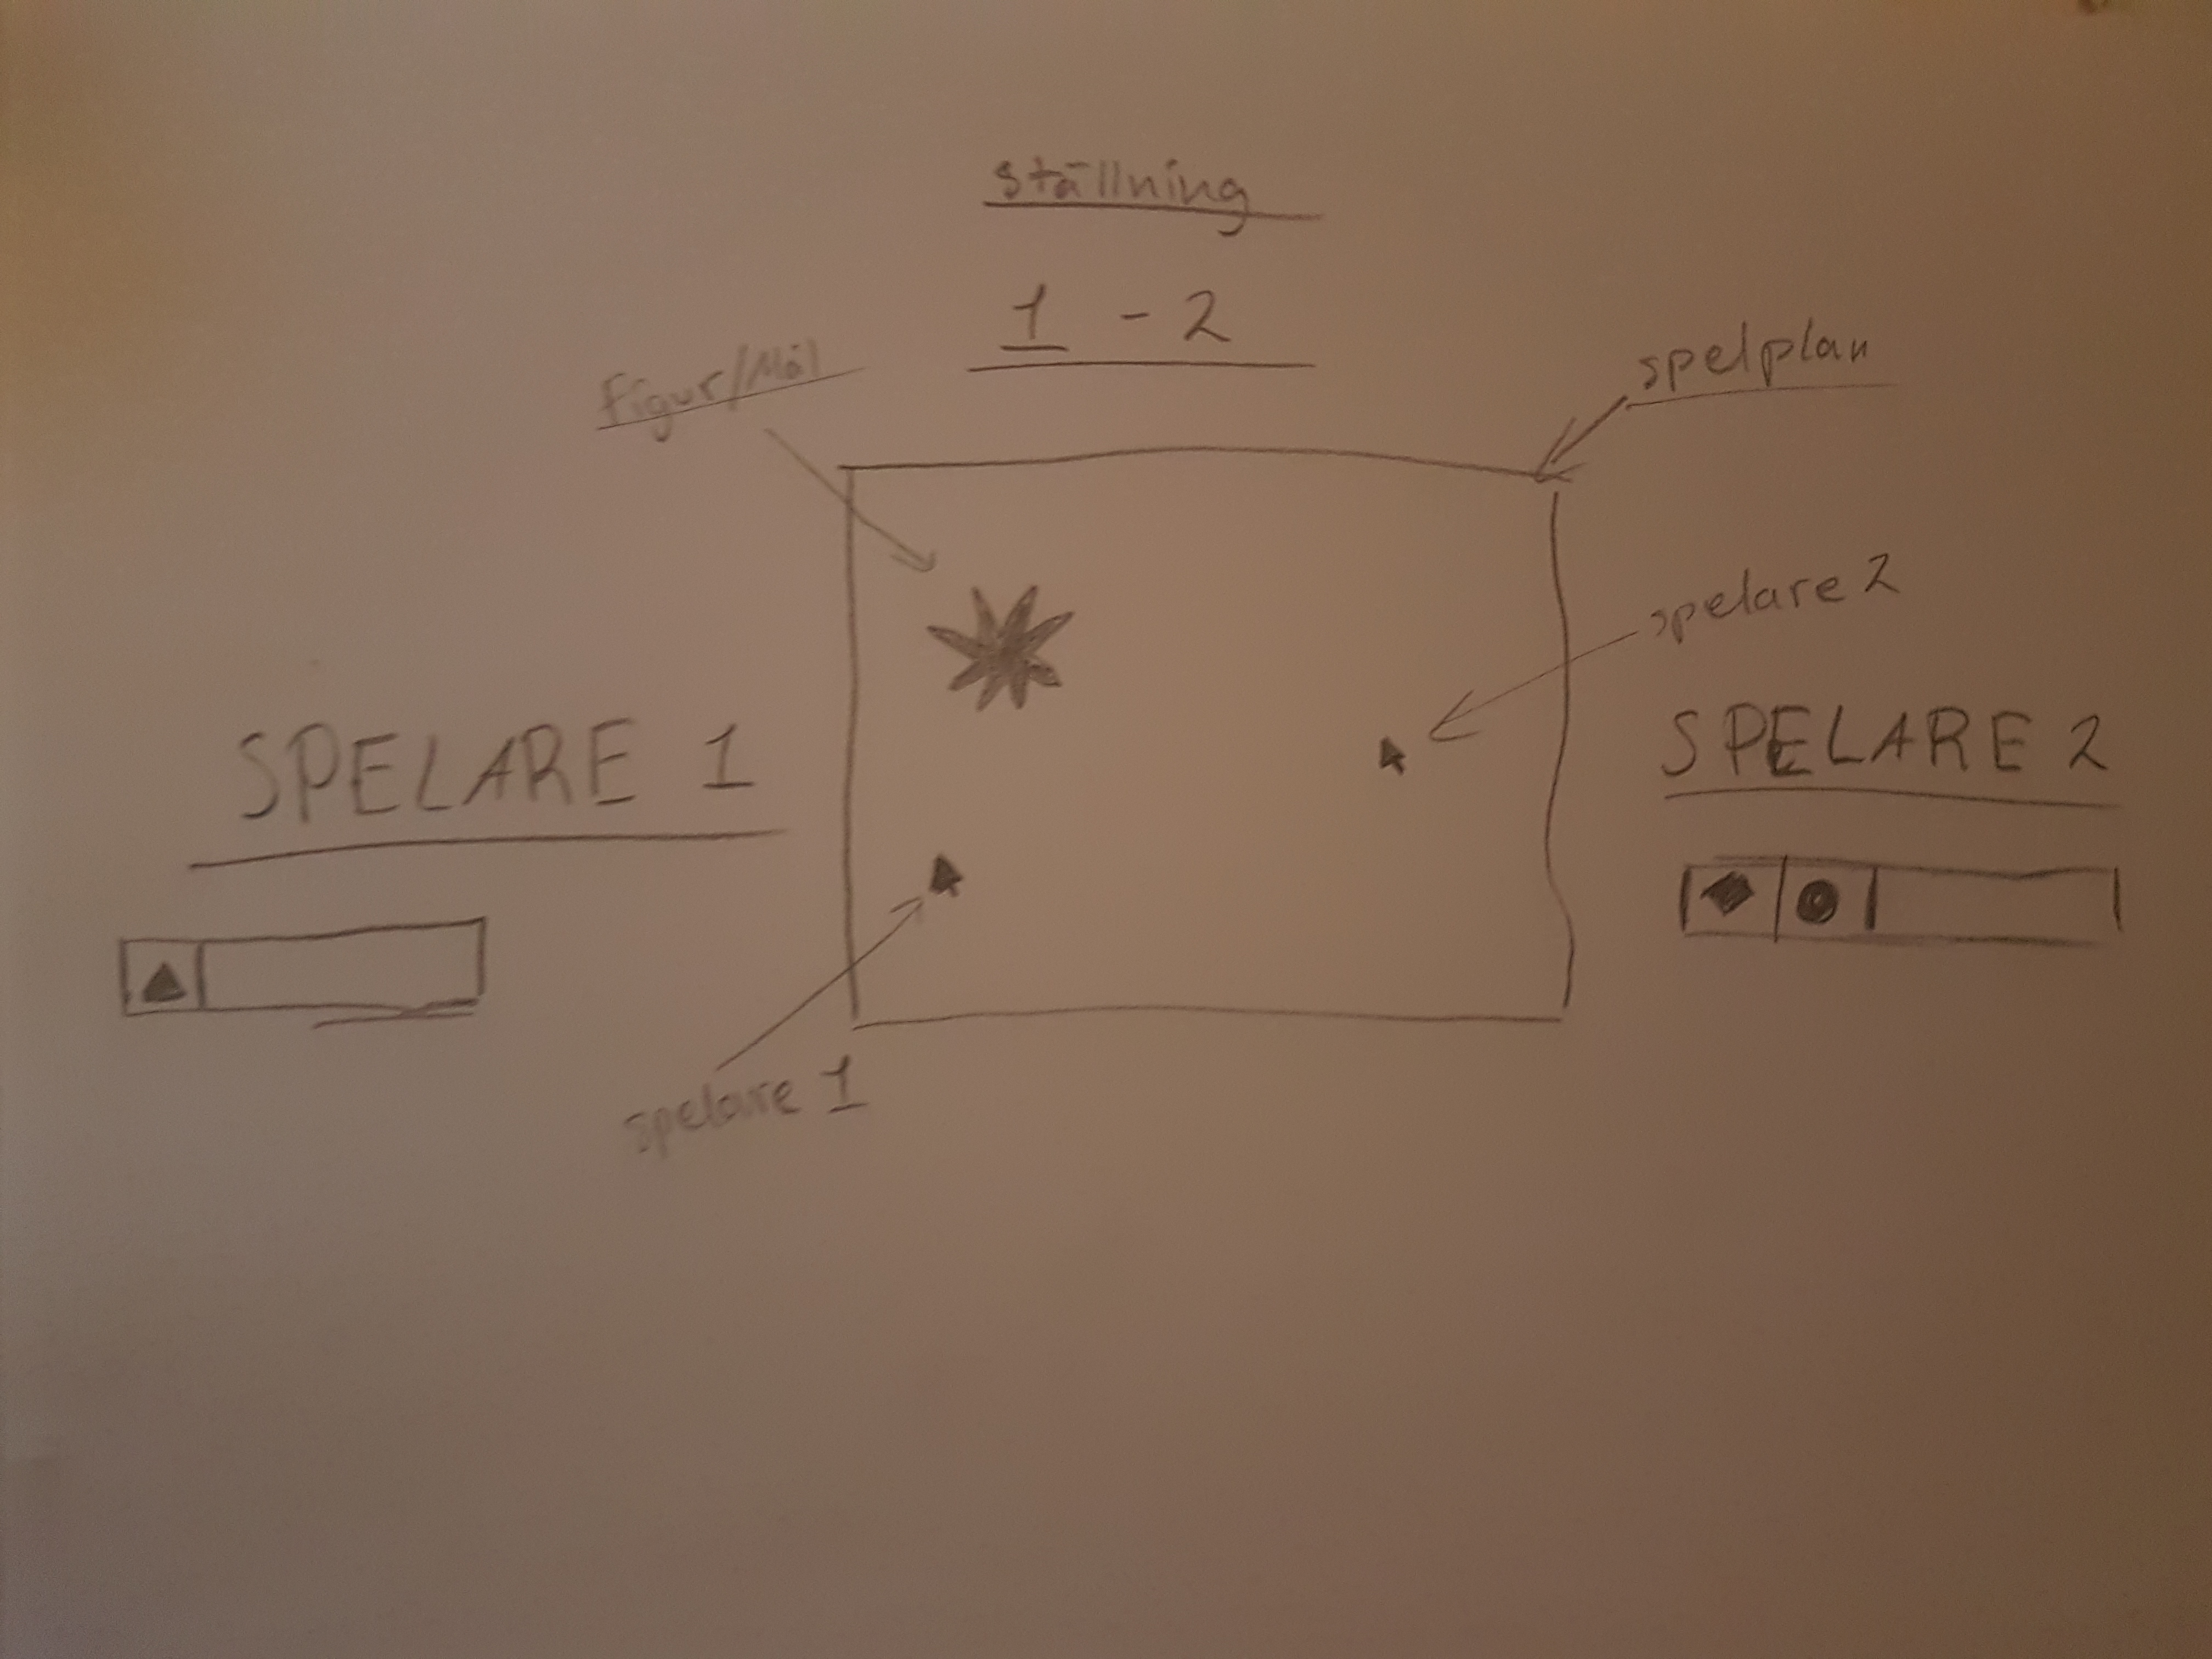 ställning
1 - 2
Figur/Mål
spelplan
spelare 2
SPELARE 1
SPELARE 2
spelare 1